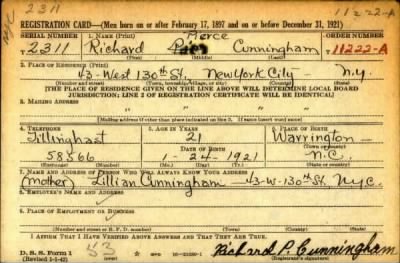 2311 11222-A
REGISTRATION CARD—(Men born on or after February 17, 1897 and on or before December 31, 1921)
SERIAL NUMBER 1. NAME (Print) ORDER NUMBER
Pierce
2311 Richard Cunningham 11222-A
(First) (Middle) (Last)
2. PLACE OF RESIDENCE (Print)
43-West 130th St. New York City — N.Y.
(Number and street) (Town, township, village, or city) (County) (State)
[THE PLACE OF RESIDENCE GIVEN ON THE LINE ABOVE WILL DETERMINE LOCAL BOARD
JURISDICTION; LINE 2 OF REGISTRATION CERTIFICATE WILL BE IDENTICAL]
3. MAILING ADDRESS
" " " "
[Mailing address if other than place indicated on line 2. If same insert word same]
4. TELEPHONE 5. AGE IN YEARS 6. PLACE OF BIRTH
Tillinghast 21 Warrington
DATE OF BIRTH (Town or county)
58566 1-24-1921 N.C.
(Exchange) (Number) (Mo.) (Day) (Yr.) (State or country)
7. NAME AND ADDRESS OF PERSON WHO WILL ALWAYS KNOW YOUR ADDRESS
(mother) Lillian Cunningham—43-W-130th St. N.Y.C.
8. EMPLOYER'S NAME AND ADDRESS
9. PLACE OF EMPLOYMENT OR BUSINESS
(Number and street or R. F. D. number) (Town) (County) (State)
I AFFIRM THAT I HAVE VERIFIED ABOVE ANSWERS AND THAT THEY ARE TRUE.
D. S. S. Form 1 53 Richard P. Cunningham
(Revised 1-1-42) (Registrant's signature)